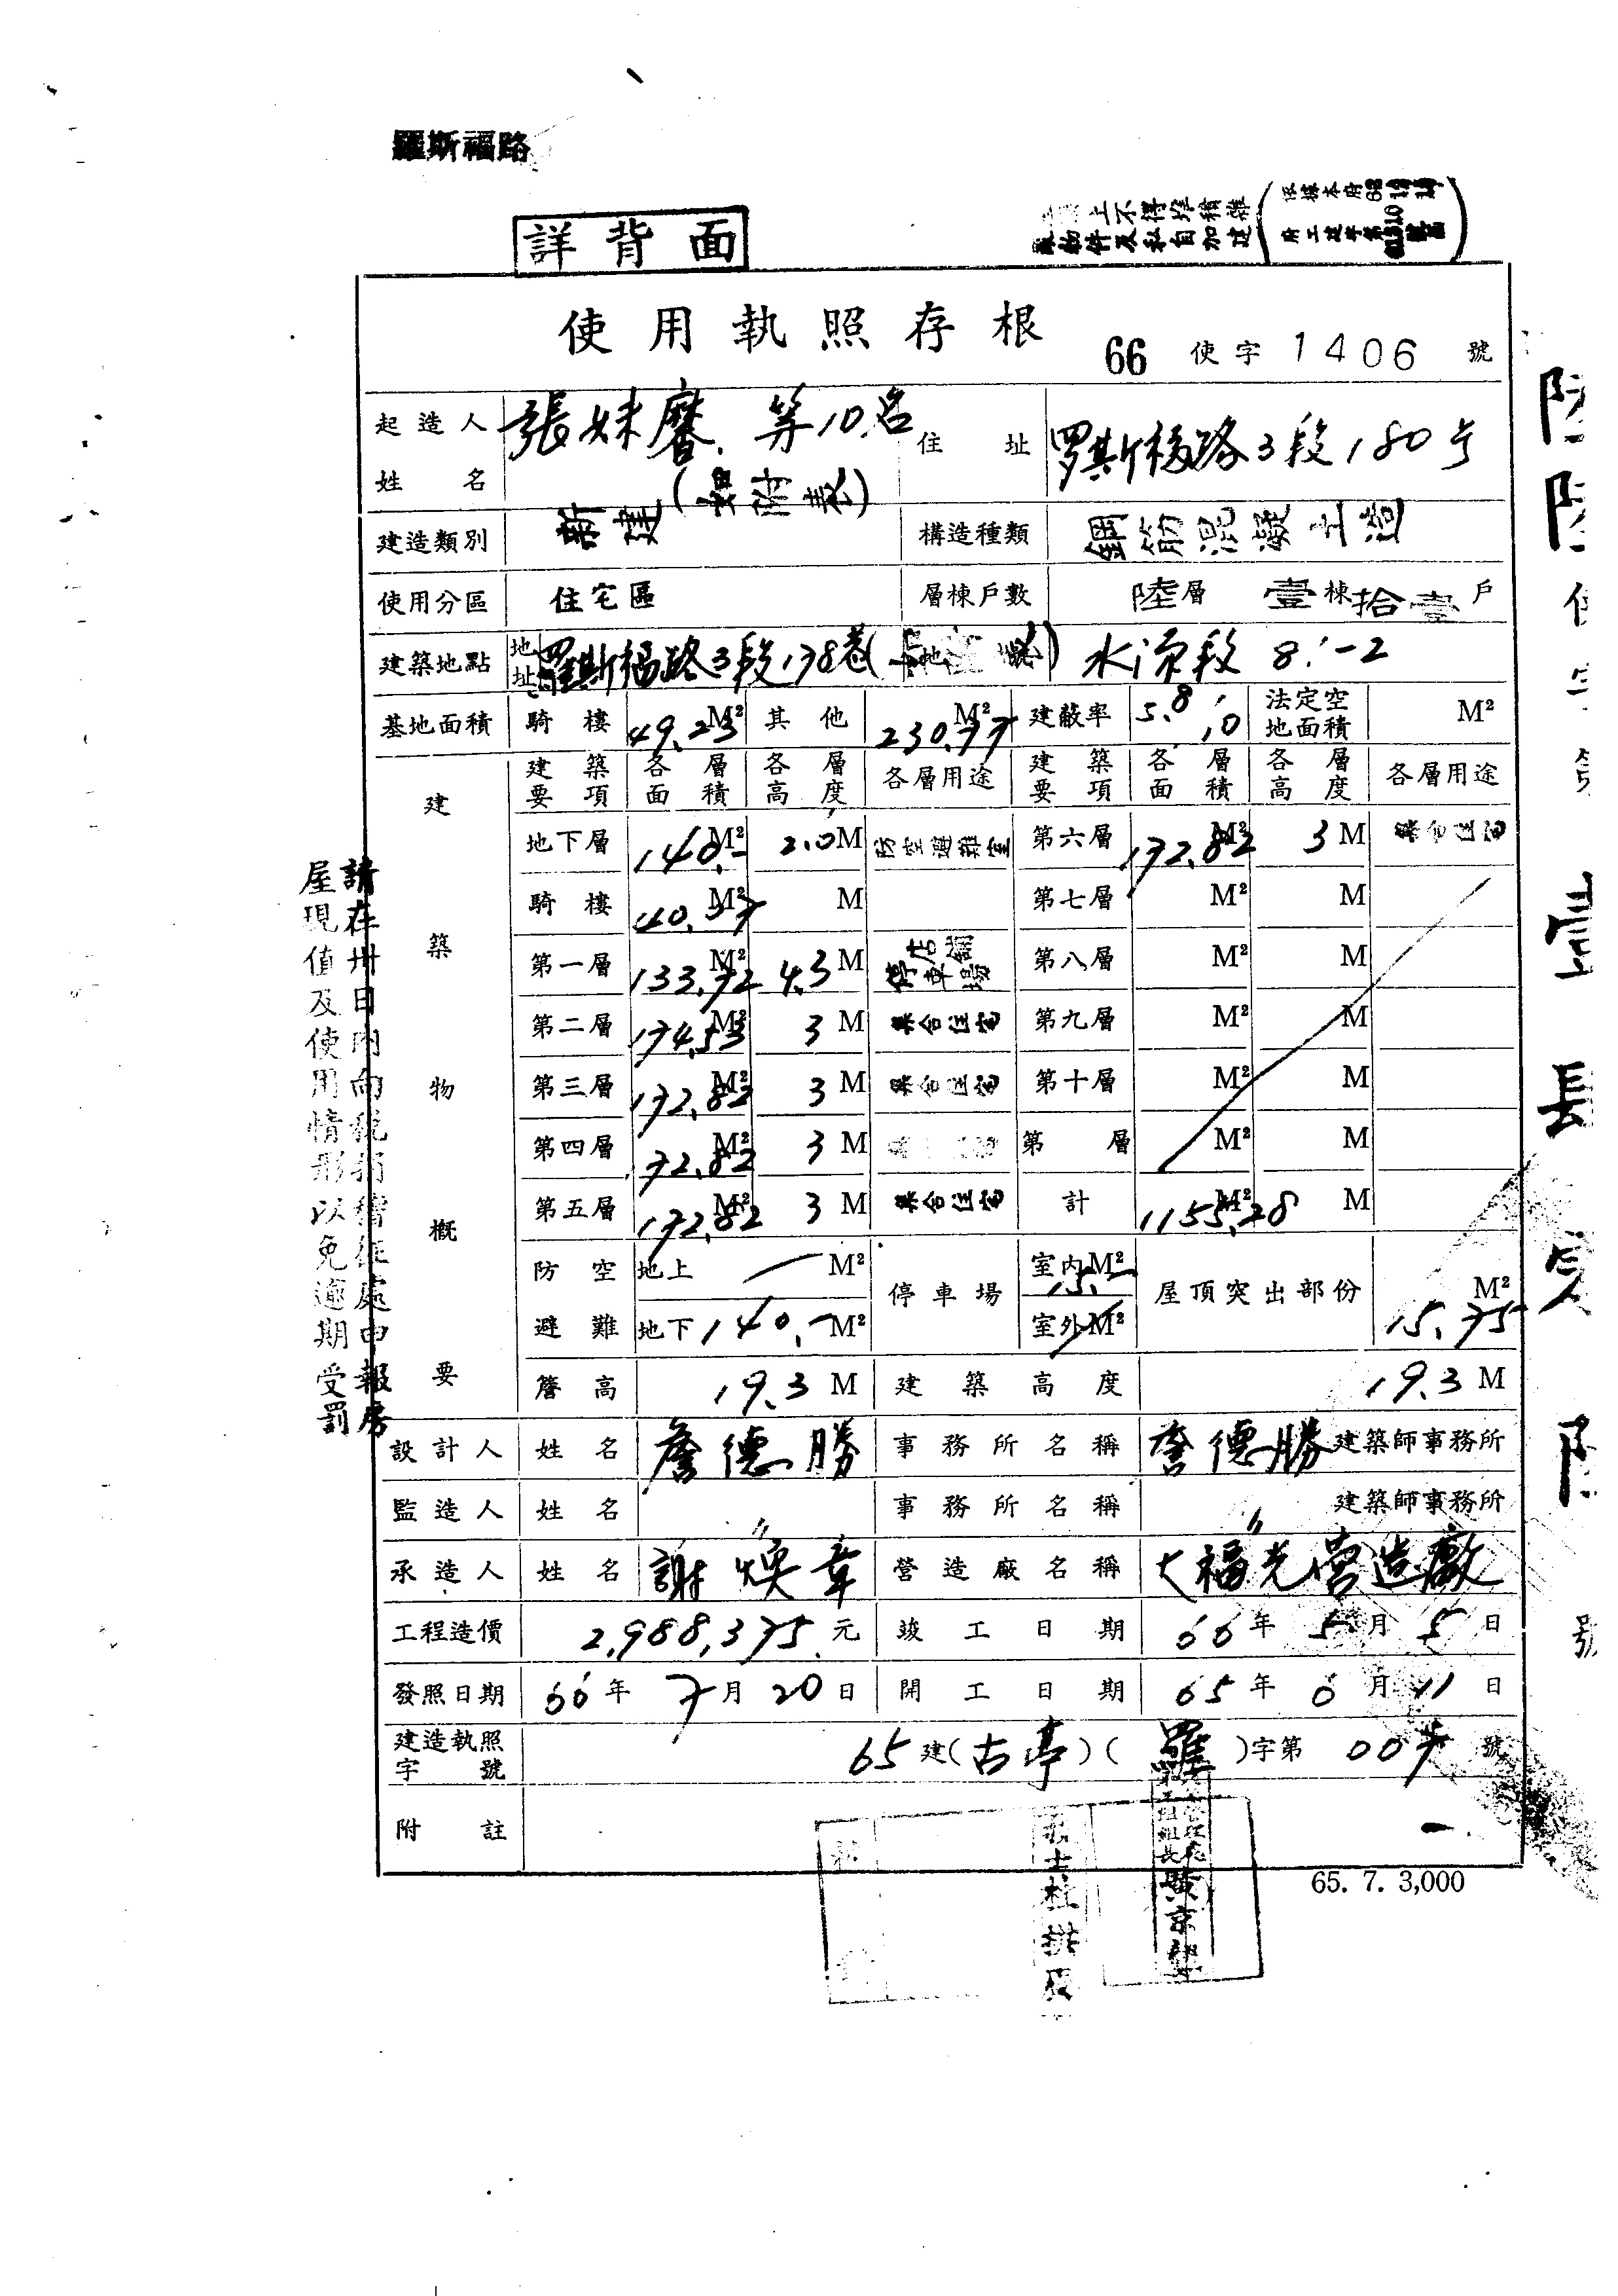 羅斯福路
上不得堆積雜
物件及私自加建
依據本府68
府工建字第
詳背面
使用執照存根
66 使字 1406 號
起造人姓名 張妹 等10名 (如附表) 住址 罗斯福路3段180号
建造類別 新建 構造種類 鋼筋混凝土造
使用分區 住宅區 層棟戶數 陸層 壹棟 拾壹戶
建築地點 地址 羅斯福路3段178巷( 地 ) 水源段 8
基地面積 騎樓 49.23 M² 其他 230.77 M² 建蔽率 法定空地面積 M²
建築物概要
建築要項 各層面積 各層高度 各層用途 建築要項 各層面積 各層高度 各層用途
地下層 140.- M² 2.0 M 防空避難室 第六層 172.82 M² 3 M 集合住宅
騎樓 40.27 M² M 第七層 M² M
第一層 133.72 M² 4.3 M 店舖 停車場 第八層 M² M
第二層 174.53 M² 3 M 集合住宅 第九層 M² M
第三層 172.82 M² 3 M 集合住宅 第十層 M² M
第四層 172.82 M² 3 M 第 層 M² M
第五層 172.82 M² 3 M 集合住宅 計 1155.28 M² M
防空避難 地上 — M² 停車場 室內 M² 15.- 屋頂突出部份 M² 15.75
地下 140.- M² 室外 M²
簷高 19.3 M 建築高度 19.3 M
設計人 姓名 詹德勝 事務所名稱 詹德勝 建築師事務所
監造人 姓名 〃 事務所名稱 〃 建築師事務所
承造人 姓名 謝煥章 營造廠名稱 大福光营造廠
工程造價 2,988,375. 元 竣工日期 66年 5月 5日
發照日期 66年 7月 20日 開工日期 65年 6月 11日
建造執照字號 65建(古亭)(羅)字第 007 號
附註
65. 7. 3,000
請在卅日內向稅捐稽征處申報房
屋現值及使用情形以免逾期受罰